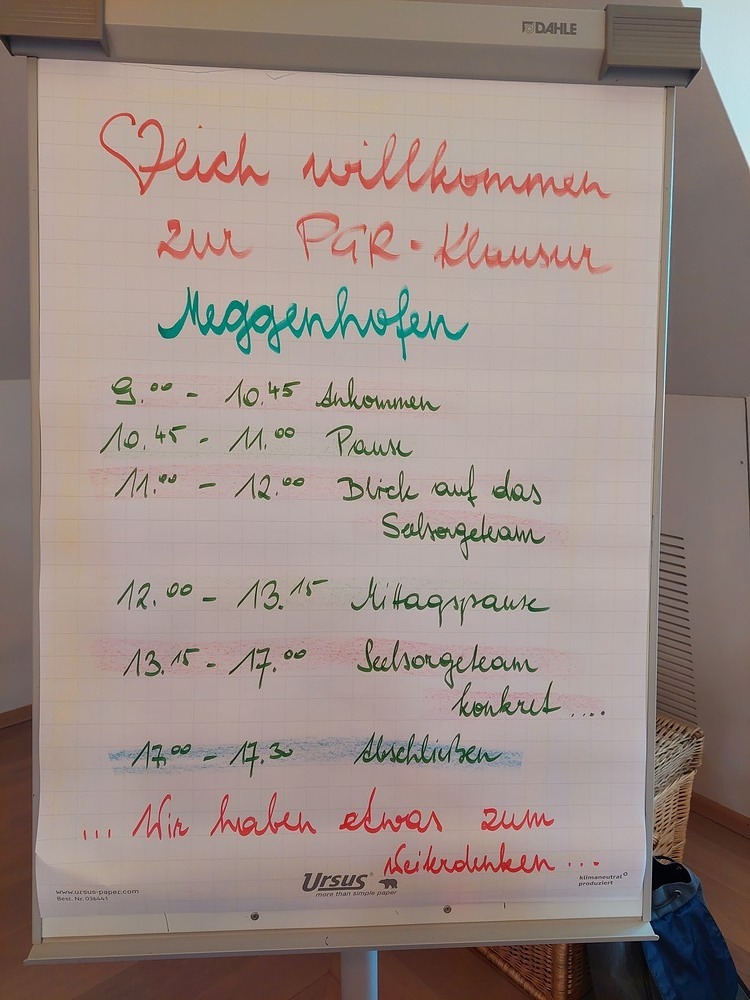 DAHLE
♡lich willkommen
zur PGR-Klausur
Meggenhofen
9.00 - 10.45 Ankommen
10.45 - 11.00 Pause
11.00 - 12.00 Blick auf das
Seelsorgeteam
12.00 - 13.15 Mittagspause
13.15 - 17.00 Seelsorgeteam
konkret ....
17.00 - 17.30 Abschließen
... Wir haben etwas zum
Weiterdenken ...
www.ursus-paper.com
Best. Nr. 036441
Ursus®
more than simple paper
klimaneutral
produziert